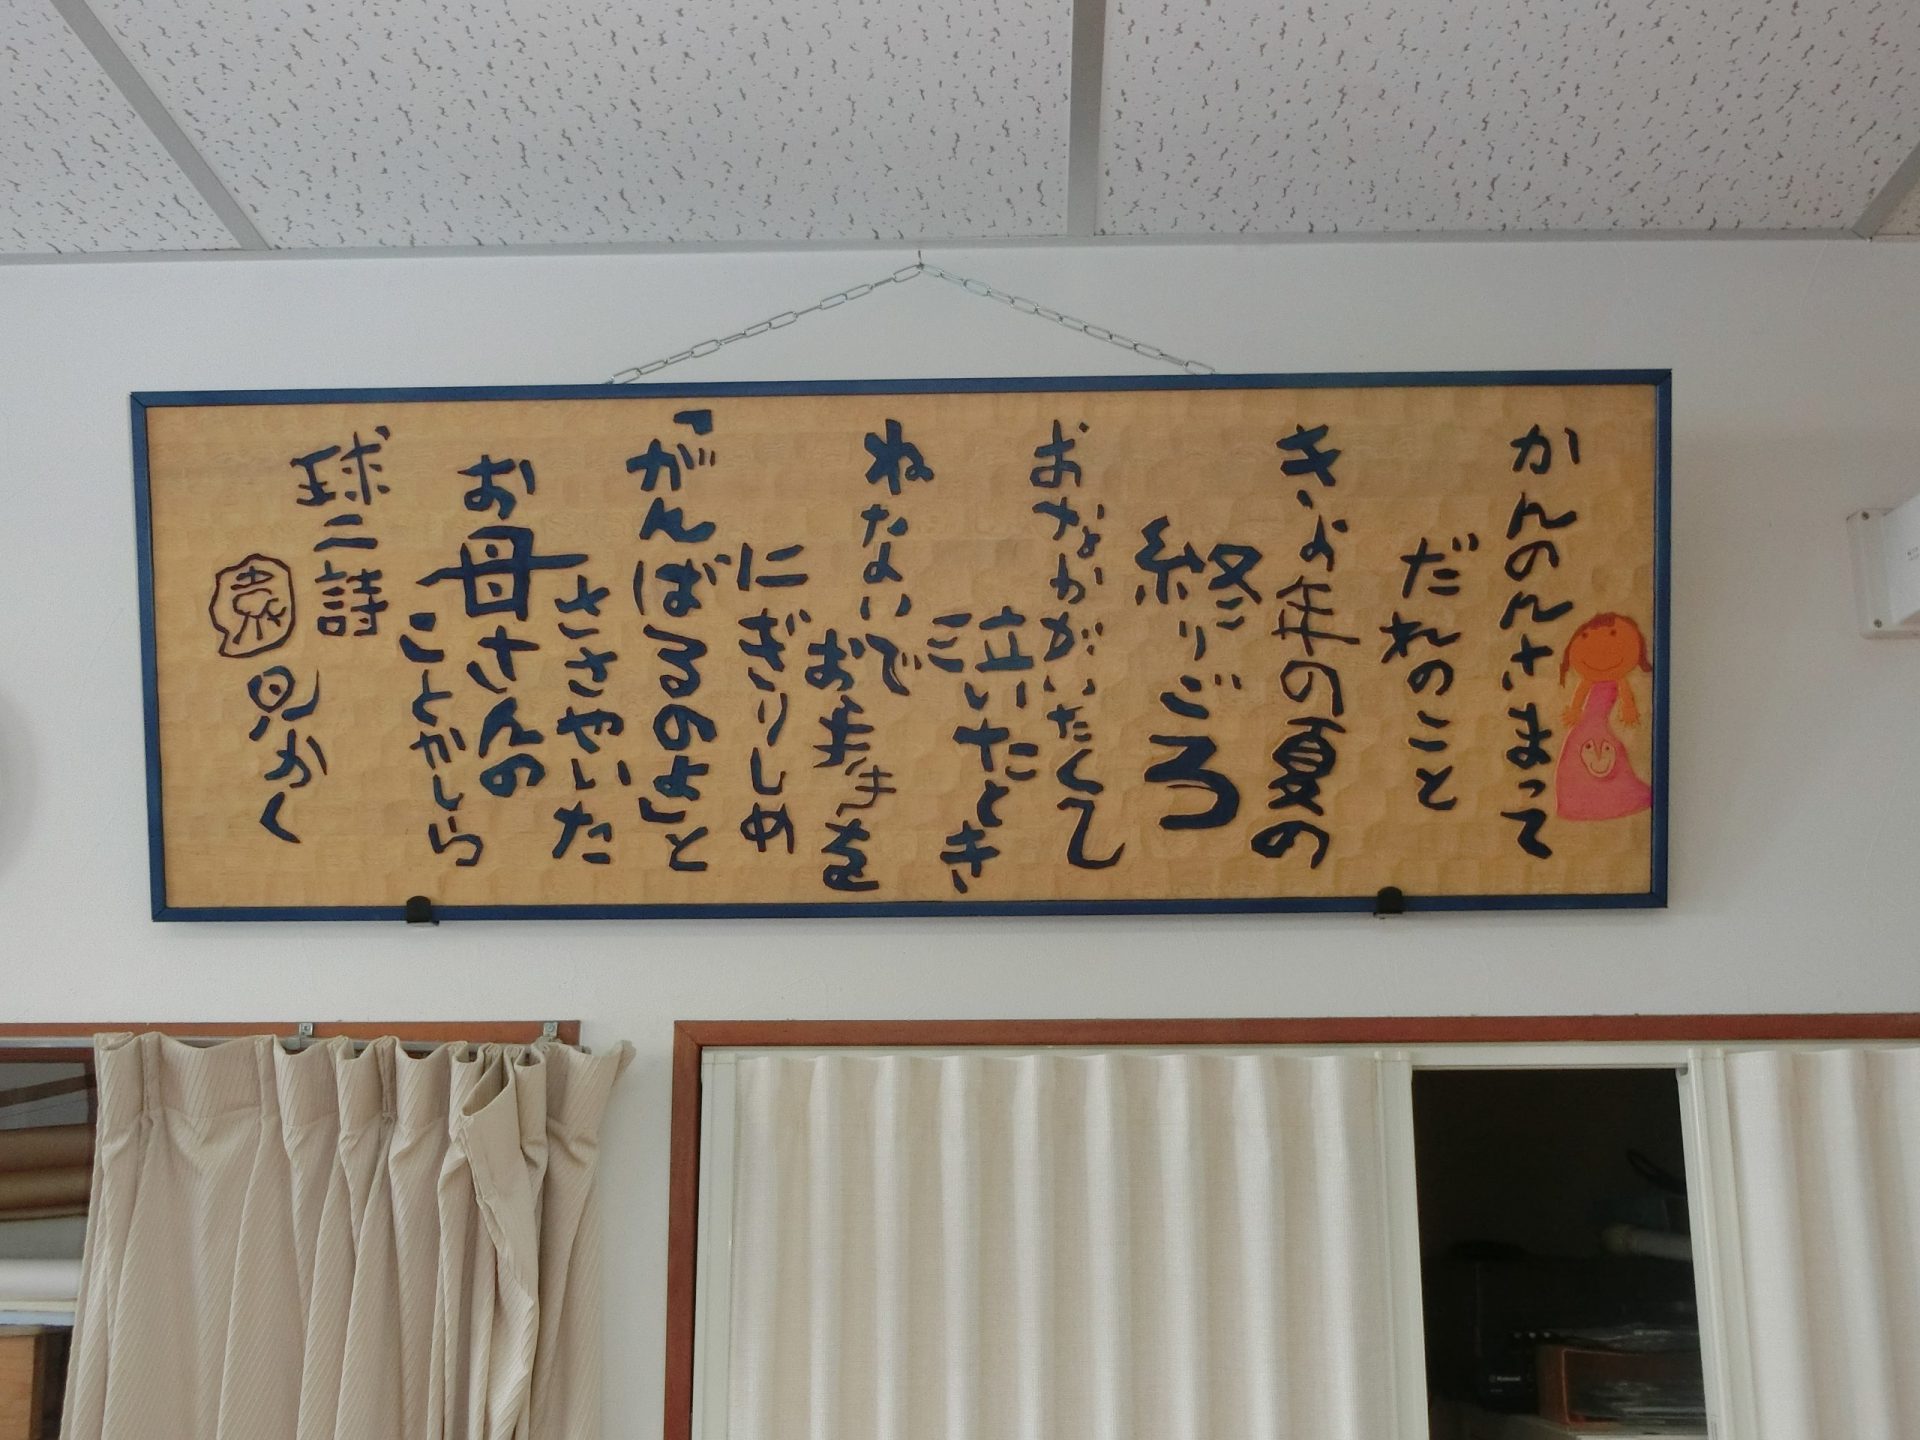 かんのんさまって
だれのこと
きょ年の夏の
終りごろ
おなかがいたくて
泣いたとき
ねないで
お手々を
にぎりしめ
「がんばるのよ」と
ささやいた
お母さんの
ことかしら
球二詩
園児かく